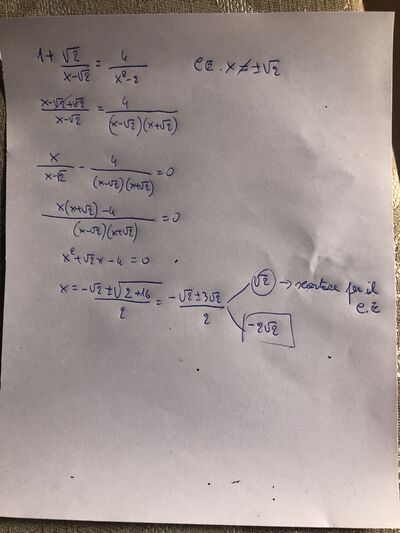 1 + √2/(x-√2) = 4/(x²-2) C.E. x ≠ ±√2
(x-√2+√2)/(x-√2) = 4/((x-√2)(x+√2))
x/(x-√2) - 4/((x-√2)(x+√2)) = 0
(x(x+√2)-4)/((x-√2)(x+√2)) = 0
x²+√2x-4=0
x = (-√2 ± √(2+16))/2 = (-√2 ± 3√2)/2 √2 → scartare per il
C.E
-2√2